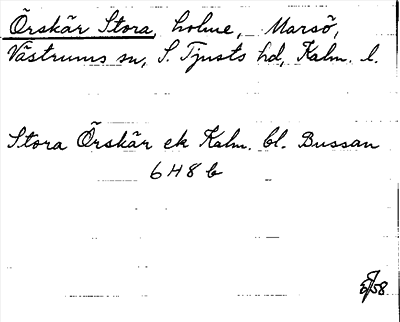 Örskär Stora, holme, Marsö,
Västrums sn, S. Tjusts hd, Kalm. l.
Stora Örskär ek Kalm. bl. Bussan
648 b